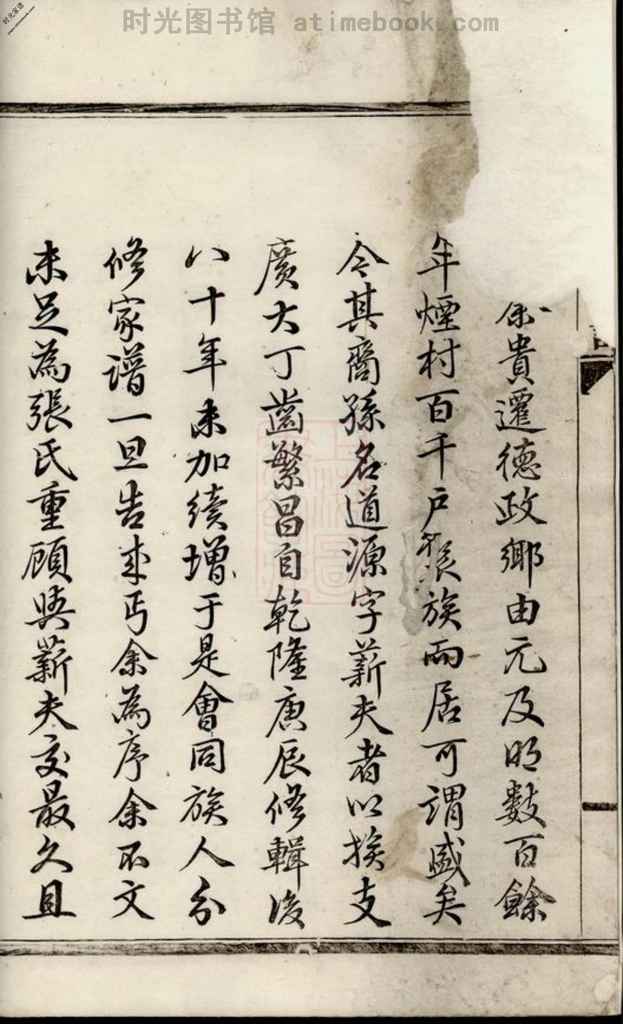 时光图书馆 atimebook.com
貴遷德政鄉由元及明數百餘
年煙村百千戶張族而居可謂盛矣
今其裔孫名道源字薪夫者以挨支
廣大丁齒繁昌自乾隆庚辰修輯後
八十年未加續增于是會同族人分
修家譜一旦告成丐余為序余不文
未足為張氏重顧與薪夫交最久且